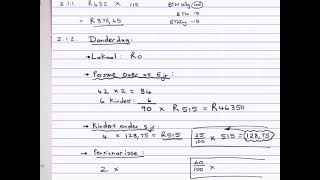 2.1.1 R432 x 115 BTW Uitg 100
BTW 15
= R375,65 BTW Ing 115
2.1.2. Donderdag:
→ Lokaal: R0
→ Persone ouer as 5 jr:
42 x 2 = 84
6 Kinders: 6
90 x R515 = R46350
→ Kinders onder 5 jr
4 x 128,75 = R515
25/100 x 515 = 128,75
→ Pensionarisse:
2 x
60/100 x